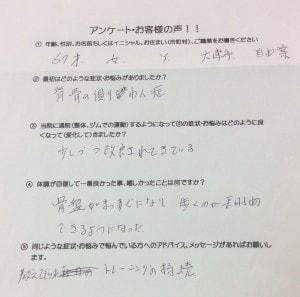 アンケート・お客様の声！！
① 年齢、性別、お名前もしくはイニシャル、お住まい(市町村)、ご職業をお書きください
67才 女 Y. 大津市 自由業
② 最初はどのような症状・お悩みがありましたか？
背骨の側わん症
③ 当院に通院(整体、ジムでの運動)するようになって②の症状・お悩みはどのように良
くなって(変化して)きましたか？
少しづつ改善されてきている
④ 体調が回復して一番良かった事、嬉しかったことは何ですか？
骨盤がまっすぐになり 歩くのが
できるようになった
⑤ 同じような症状・お悩みで悩んでいる方へのアドバイス、メッセージがあればお願いし
ます。
教えてもらった トレーニングの持続